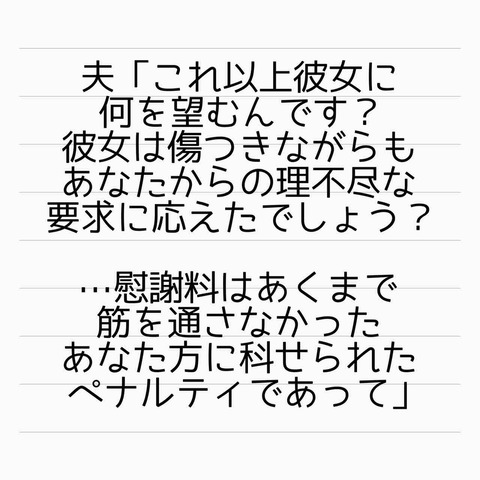 夫「これ以上彼女に
何を望むんです？
彼女は傷つきながらも
あなたからの理不尽な
要求に応えたでしょう？
…慰謝料はあくまで
筋を通さなかった
あなた方に科せられた
ペナルティであって」